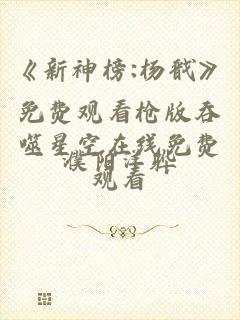 《新神榜:杨戬》
免费观看枪版吞
噬星空在线免费
观看
濮阳洋骅